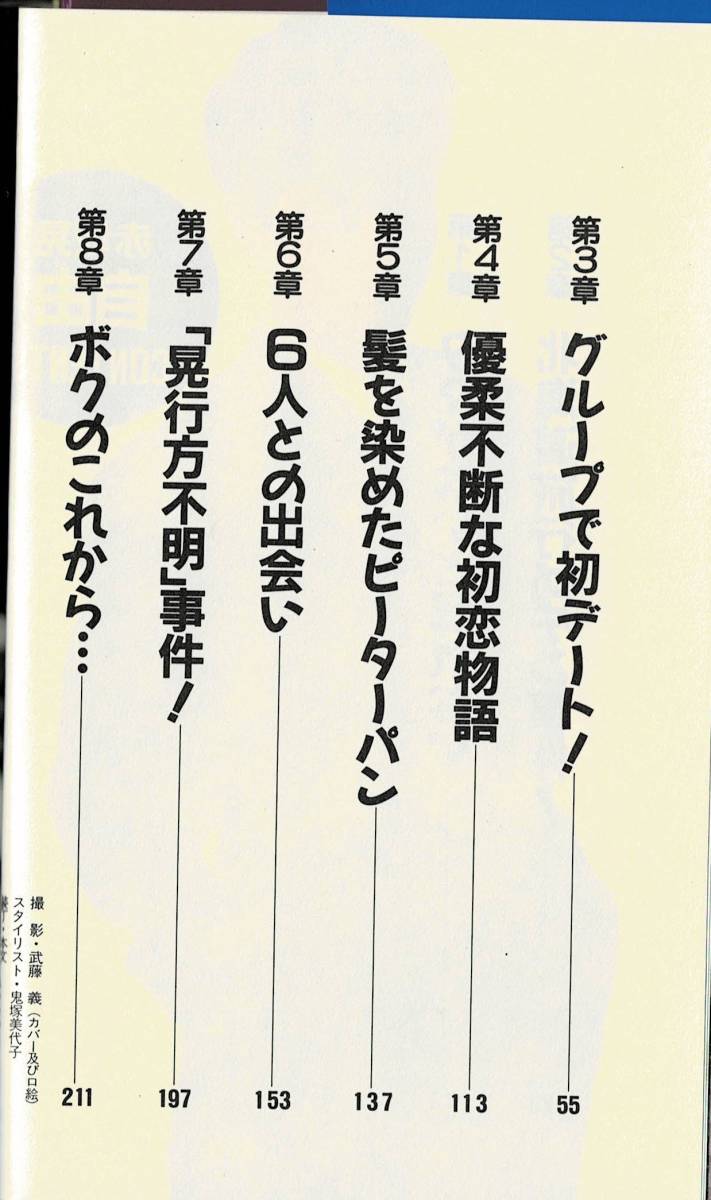 第3章 グループで初デート! 55
第4章 優柔不断な初恋物語 113
第5章 髪を染めたピーターパン 137
第6章 6人との出会い 153
第7章 「晃行方不明」事件! 197
第8章 ボクのこれから… 211
撮 影・武藤 義(カバー及び口絵)
スタイリスト・鬼塚美代子